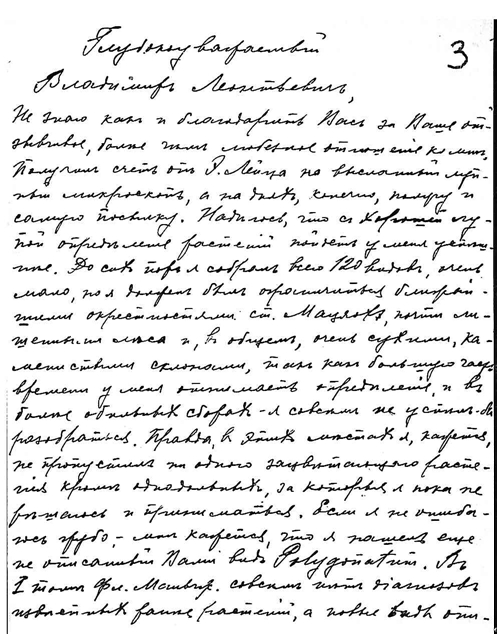 Глубокоуважаемый
3
Владимиръ Леонтьевичъ,
Не знаю какъ и благодарить Васъ за Ваше от-
зывчивое, более чѣмъ любезное отношеніе ко мнѣ.
Получилъ счетъ отъ Р. Лейца на высланный луп-
ный микроскопъ, а на дняхъ, конечно, получу и
самую посылку. Надѣюсь, что съ хорошей лу-
пой опредѣленіе растеній пойдетъ у меня успѣш-
нѣе. До сихъ поръ я собралъ всего 120 видовъ, очень
мало, но я долженъ былъ ограничиться ближай-
шими окрестностями ст. Мацяохэ, почти ли-
шенными лѣса и, въ общемъ, очень сухими, ка-
менистыми склонами, такъ какъ большую часть
времени у меня отнимаетъ опредѣленіе, и въ
более обильныхъ сборахъ я совсѣмъ не успѣлъ бы
разобраться. Правда, въ этихъ мѣстахъ я, кажется,
не пропустилъ ни одного зацвѣтающаго расте-
нія кромѣ однодольныхъ, за которыя я пока не
рѣшаюсь и приниматься. Если я не ошиба-
юсь грубо, - мнѣ кажется, что я нашелъ еще
не описанный Вами видъ Polygonatum. Въ
I томѣ Фл. Маньчж. совсѣмъ нѣтъ діагнозовъ
извѣстныхъ ранѣе растеній, а новые виды опи-